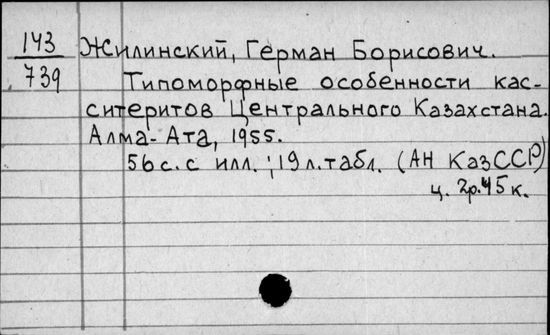 143 Жилинский, Герман Борисович.
739 Типоморфные особенности кас-
ситеритов Центрального Казахстана.
Алма-Ата, 1955.
56 с. с илл.; 19 л. табл. (АН КазССР)
ц. 2р. 45 к.